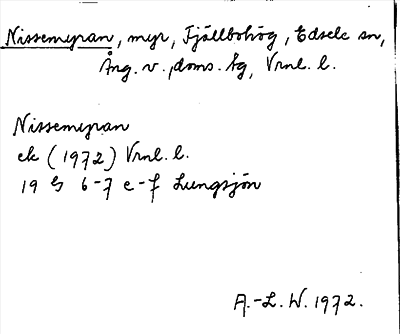 Nissemyran, myr, Fjällbohög, Edsele sn,
Ång. v. doms. bg, Vrnl. l.
Nissemyran
ek (1972) Vrnl. l.
19 G 6-7 e-f Lungsjön
A.-L. W. 1972.